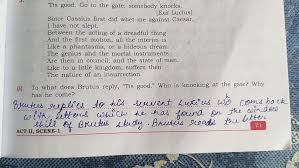 'Tis good. Go to the gate; somebody knocks.
[Exit Lucius]
Since Cassius first did whet me against Caesar,
I have not slept.
Between the acting of a dreadful thing
And the first motion, all the interim is
Like a phantasma, or a hideous dream.
The genius and the mortal instruments
Are then in council; and the state of man,
Like to a little kingdom, suffers then
The nature of an insurrection.
To what does Brutus reply, 'Tis good.' Who is knocking at the gate? Why
has he come?
Brutus replies to his servent Lucius wo comeback
with letters which he has found on the window
shill of Brutus study. Brutus reads the letter
ACT II, SCENE-1
73